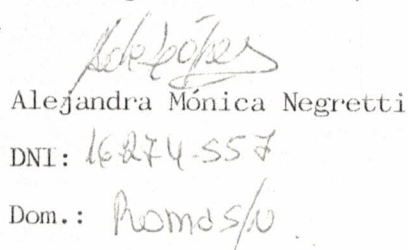 Alejandra Mónica Negretti
DNI: 16.274.557
Dom.: Roma s/n